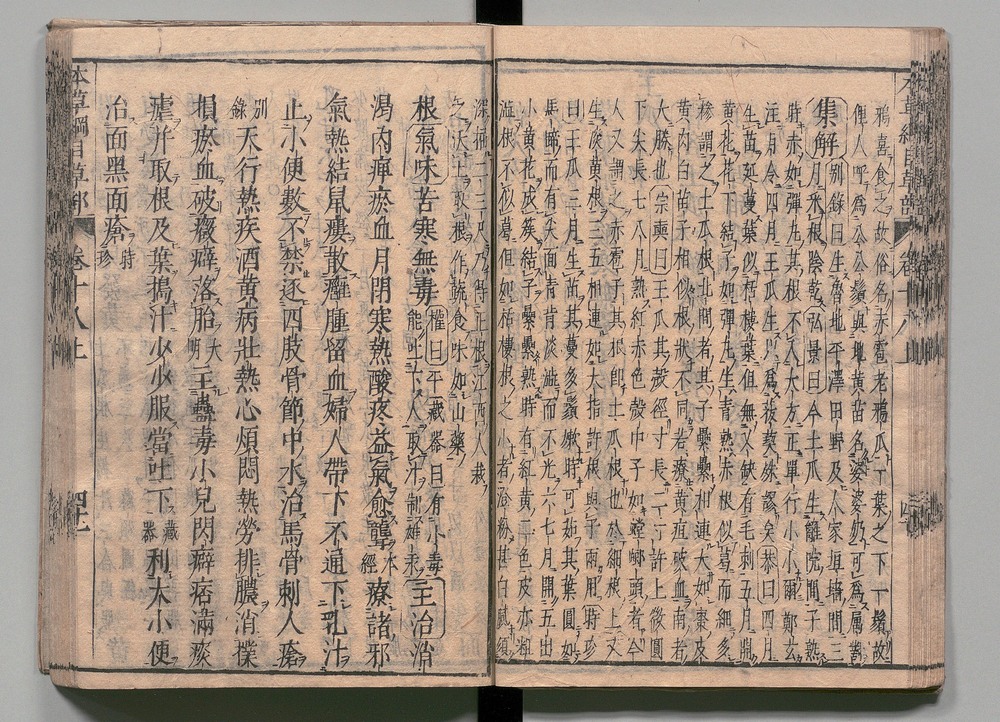 鴉喜食之故俗名赤雹老鴉瓜一葉之下一鬚故
俚人呼爲公公鬚與地黃苗名婆婆奶可爲屬對
集解別錄曰生魯地平澤田野及人家垣墻間三
月采根陰乾弘景曰今土瓜生籬院間子熟
時赤如彈丸其根不入大方正單行小小爾鄭玄
注月令四月王瓜生以爲菝葜殊謬矣恭曰四月
生苗延蔓葉似栝樓葉但無叉缺有毛刺五月開
黃花花下結子如彈丸生青熟赤根似葛而細多
糝謂之土瓜根北間者其子纍纍相連大如棗皮
黃肉白苗子相似根狀不同若療黃疸破血南者
大勝也宗奭曰王瓜其殼徑寸長二寸許上微圓
下尖長七八月熟紅赤色殼中子如螳螂頭者今
人又謂之赤雹子其根卽土瓜根也於細根上又
生淡黃根三五相連如大指許根與子兩用時珍
曰王瓜三月生苗其蔓多鬚嫩時可茹其葉圓如
馬蹄而有尖面青背淡澁而不光六七月開五出
小黃花成簇結子纍纍熟時有紅黃二色皮亦粗
澁根不似葛但如栝樓根之小者澄粉甚白膩須
深掘二三尺乃得正根江西人栽
之沃土取根作蔬食味如山藥
根氣味苦寒無毒權曰平藏器曰有小毒能吐下人取汁制雄汞主治消
渴內痺瘀血月閉寒熱酸疼益氣愈聾本經療諸邪
氣熱結鼠瘻散癰腫留血婦人帶下不通下乳汁
止小便數不禁逐四肢骨節中水治馬骨刺人瘡
別錄天行熱疾酒黃病壯熱心煩悶熱勞排膿消撲
損瘀血破癥癖落胎大明主蠱毒小兒閃癖痞滿痰
瘧并取根及葉搗汁少少服當吐下藏器利大小便
治面黑面瘡時珍
本草綱目草部
卷十八上